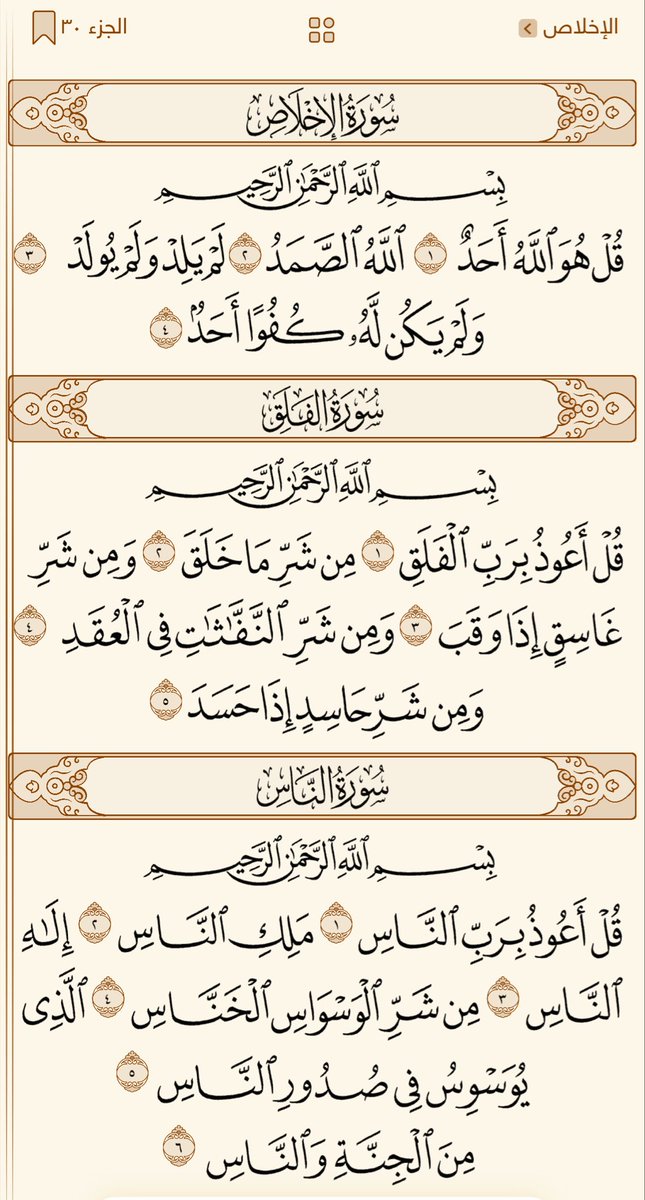 الإخلاص
الجزء ٣٠
سُورَةُ الإِخْلَاصِ
بِسْمِ ٱللَّهِ ٱلرَّحْمَٰنِ ٱلرَّحِيمِ
قُلْ هُوَ ٱللَّهُ أَحَدٌ ١ ٱللَّهُ ٱلصَّمَدُ ٢ لَمْ يَلِدْ وَلَمْ يُولَدْ ٣
وَلَمْ يَكُن لَّهُۥ كُفُوًا أَحَدٌۢ ٤
سُورَةُ الفَلَقِ
بِسْمِ ٱللَّهِ ٱلرَّحْمَٰنِ ٱلرَّحِيمِ
قُلْ أَعُوذُ بِرَبِّ ٱلْفَلَقِ ١ مِن شَرِّ مَا خَلَقَ ٢ وَمِن شَرِّ
غَاسِقٍ إِذَا وَقَبَ ٣ وَمِن شَرِّ ٱلنَّفَّٰثَٰتِ فِى ٱلْعُقَدِ ٤
وَمِن شَرِّ حَاسِدٍ إِذَا حَسَدَ ٥
سُورَةُ النَّاسِ
بِسْمِ ٱللَّهِ ٱلرَّحْمَٰنِ ٱلرَّحِيمِ
قُلْ أَعُوذُ بِرَبِّ ٱلنَّاسِ ١ مَلِكِ ٱلنَّاسِ ٢ إِلَٰهِ
ٱلنَّاسِ ٣ مِن شَرِّ ٱلْوَسْوَاسِ ٱلْخَنَّاسِ ٤ ٱلَّذِى
يُوَسْوِسُ فِى صُدُورِ ٱلنَّاسِ ٥
مِنَ ٱلْجِنَّةِ وَٱلنَّاسِ ٦